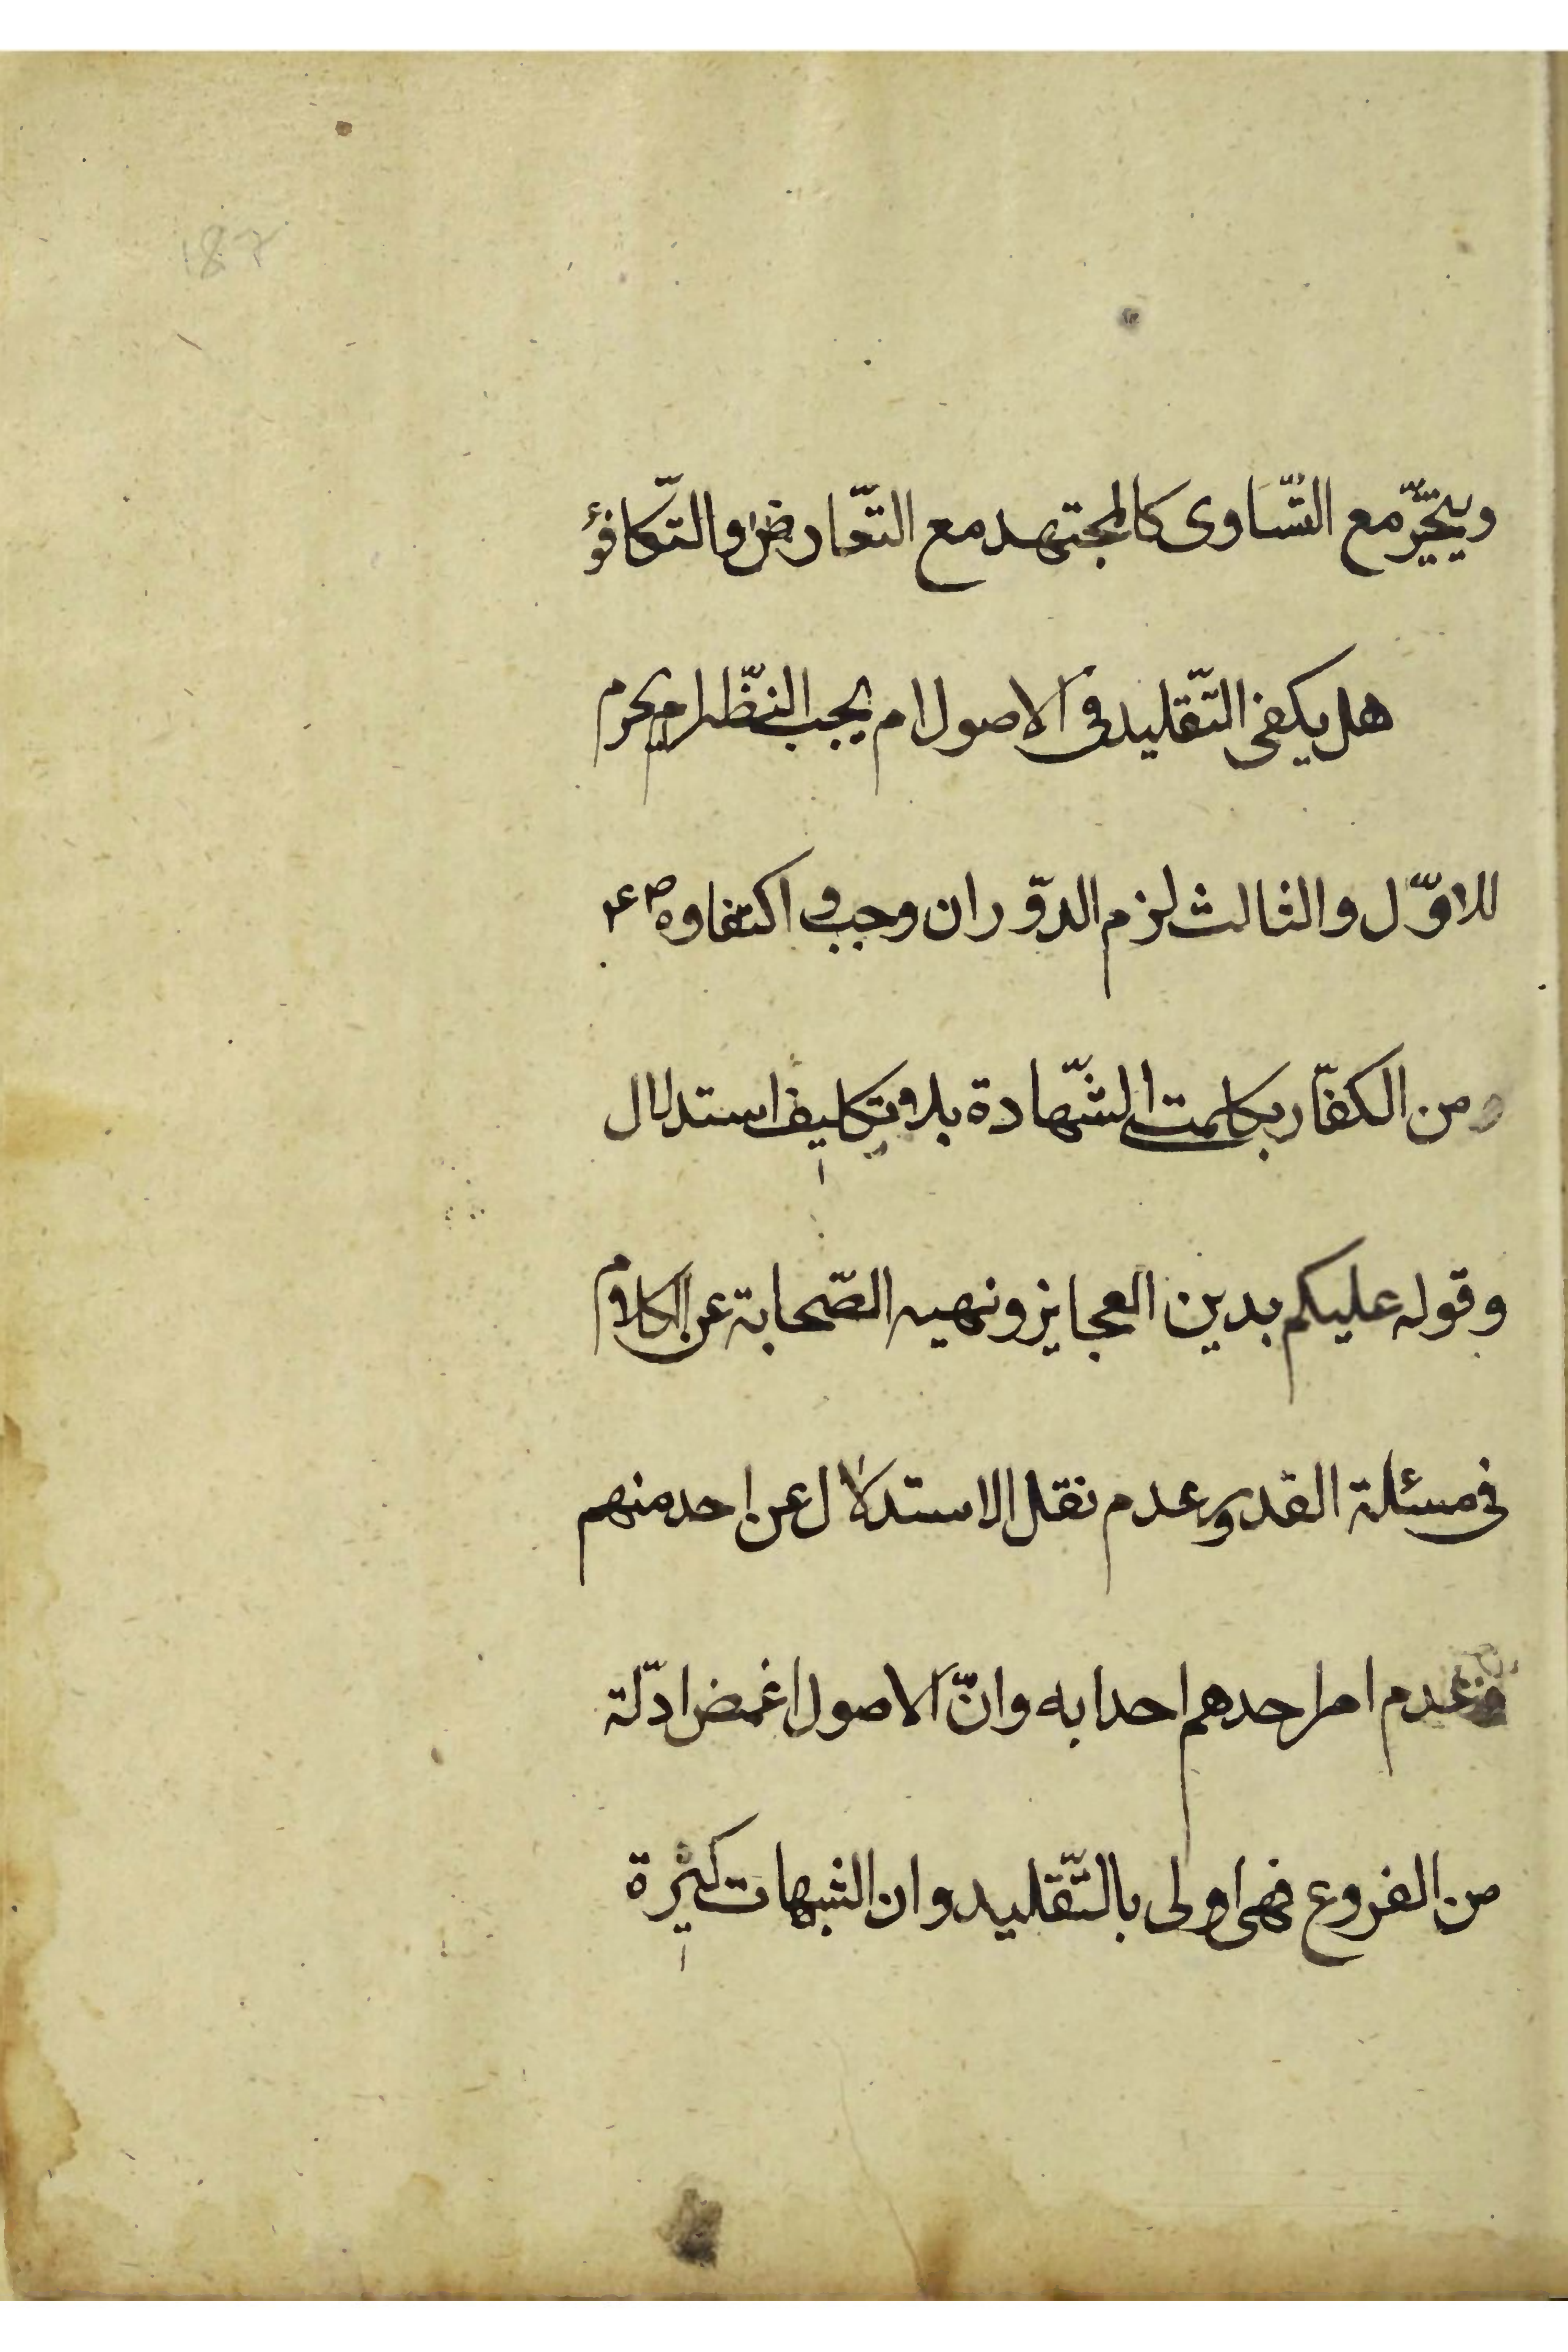 187
ويتخيّر مع التّساوى كالمجتهد مع التّعارض والتّكافؤ
هل يكفى التّقليد فى الاصول ام يجب النّظر ام يحرم
للاوّل والثالث لزم الدّور ان وجب واكتفاوه ص ع م
من الكفّار بكلمتى الشّهادة بلا تكليف استدلال
وقوله عليكم بدين العجايز ونهيه الصّحابة عن الكلام
فى مسئلة القدر وعدم نقل الاستدلال عن احد منهم
وعدم امر احدهم احدا به وانّ الاصول اغمض ادلّة
من الفروع فهى اولى بالتّقليد وان الشبهات كثيرة